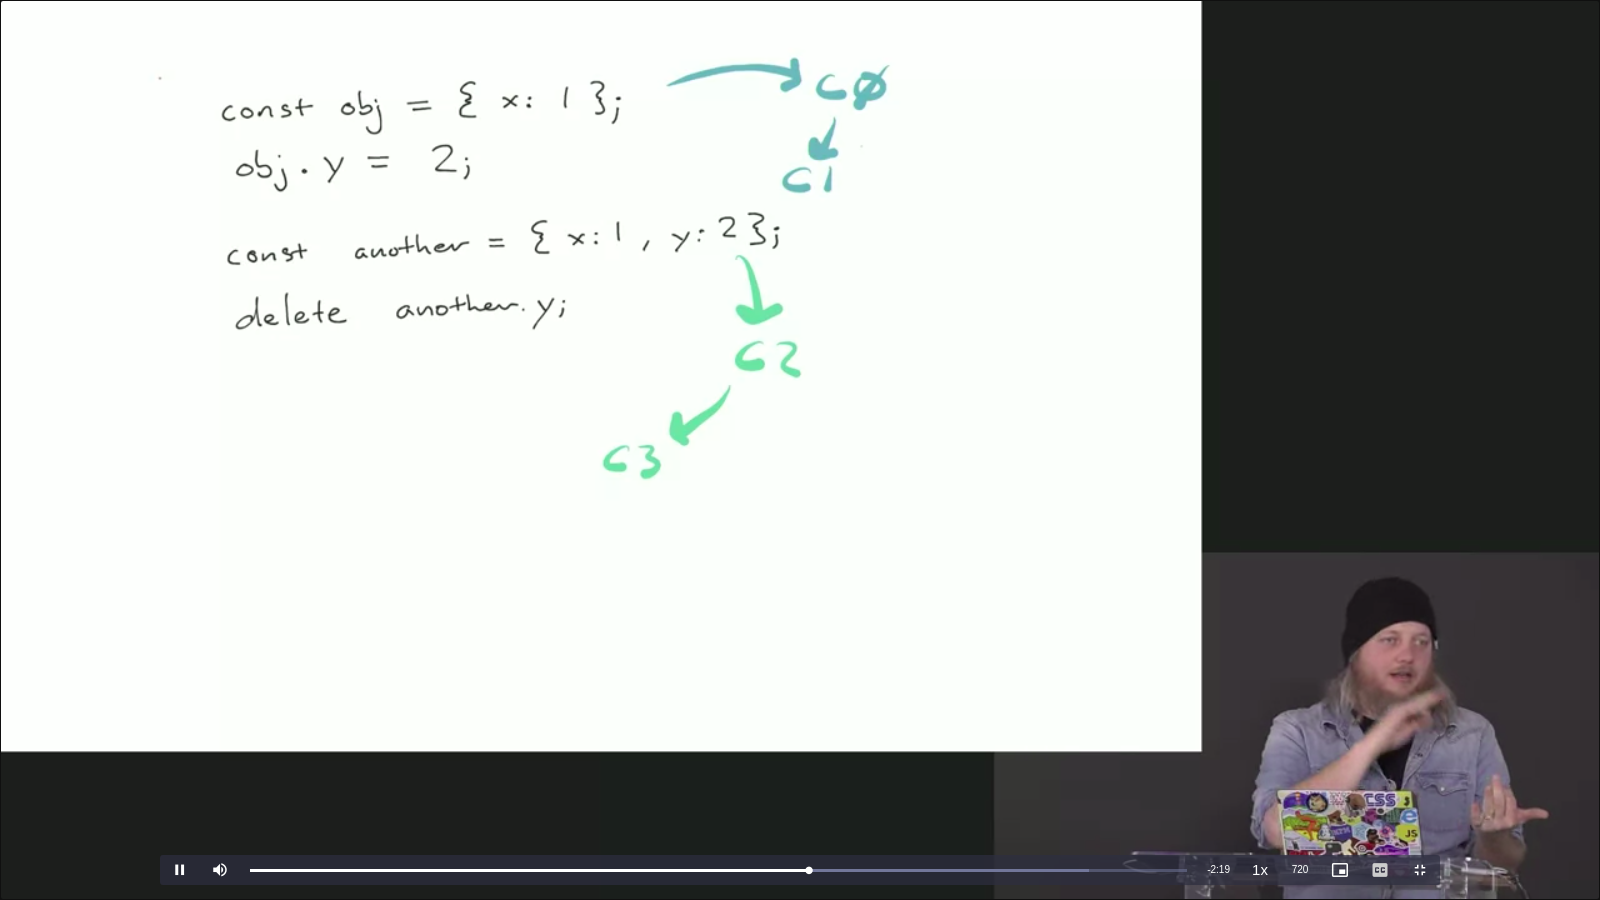 const obj = { x: 1 };
CØ
obj.y = 2;
C1
const another = { x:1, y:2};
delete another.y;
C2
C3
CSS
JS
-2:19
1x
720
CC